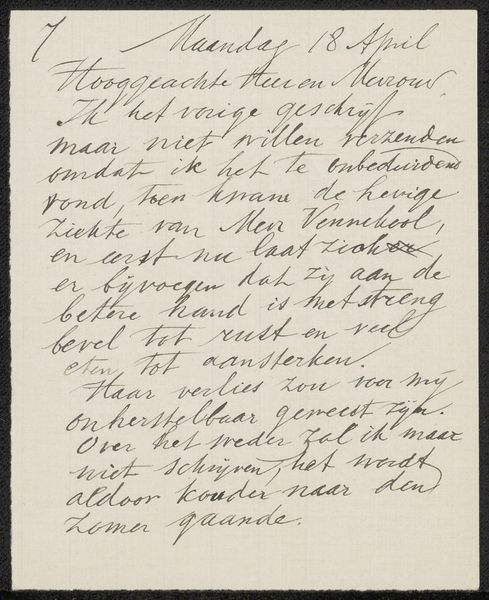 7 Maandag 18 April
Hooggeachte Heer en Mevrouw.
Ik heb vorige geschrijf
maar niet willen verzenden
omdat ik het te onbeduidend
vond, toen kwam de hevige
ziekte van Mevr Vennekool,
en eerst nu laat zich er
er bijvoegen dat zij aan de
betere hand is met streng
bevel tot rust en veel
eten, tot aansterken.
Haar verlies zou voor mij
onherstelbaar geweest zijn.
Over het weder zal ik maar
niet schrijven, het wordt
aldoor kouder naar den
zomer gaande.